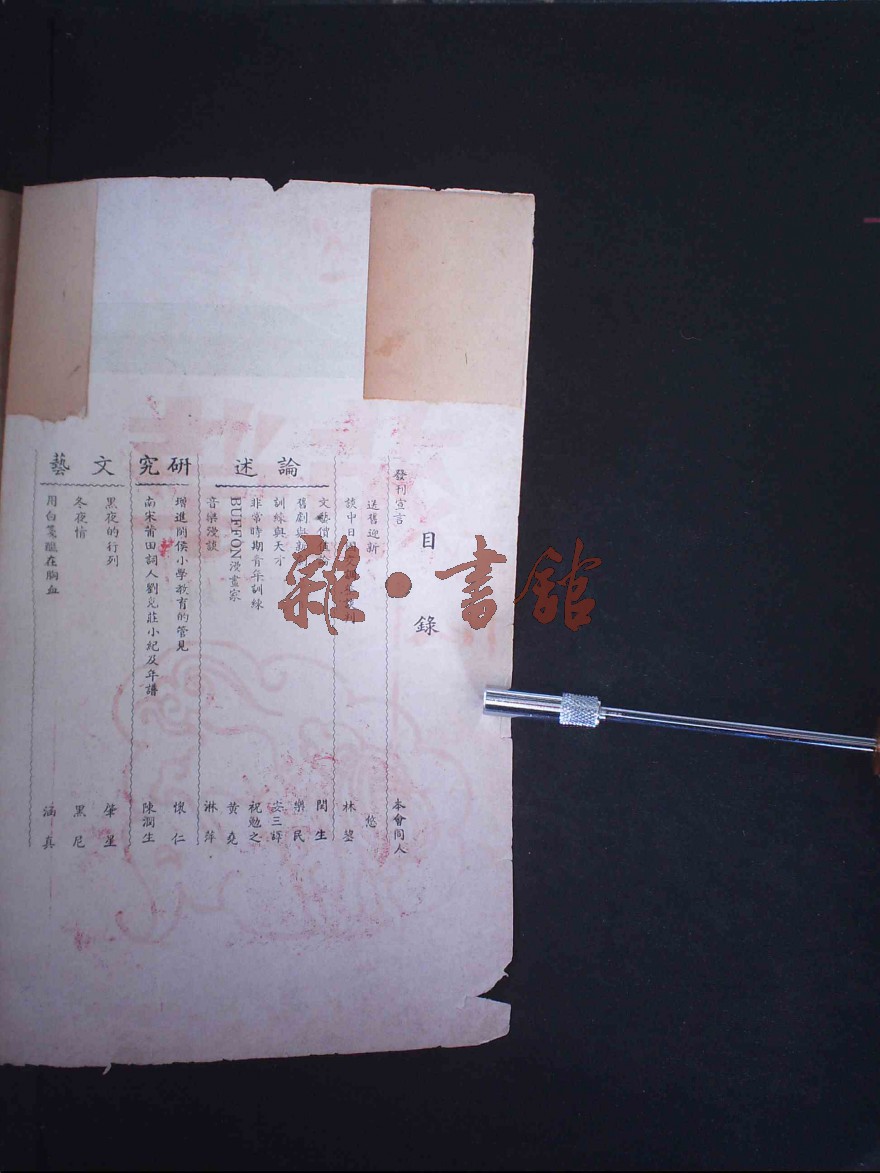 目錄
發刊宣言 本會同人
送舊迎新 悠
談中日 林鋆
論述
文藝價值 閩生
舊劇與 樂民
訓練與天才 三譯
非常時期青年訓練 祝勉之
BUFFON漫畫家 黄堯
音樂漫談 淋萍
研究
增進閩侯小學教育的管見 懷仁
南宋莆田詞人劉克莊小紀及年譜 陳潤生
文藝
黑夜的行列 肇星
冬夜情 黑尼
用白箋醮在胸血 涵真
雜·書館